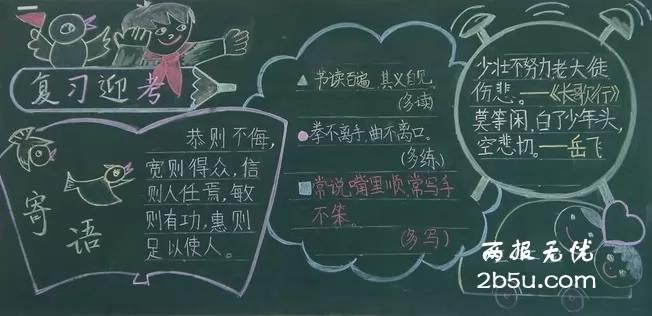 复习迎考
寄语
恭则不侮,
宽则得众,信
则人任焉,敏
则有功,惠则
足以使人。
▲书读百遍,其义自见。
(多读)
●拳不离手,曲不离口。
(多练)
■常说嘴里顺,常写手
不笨。
(多写)
少壮不努力老大徒
伤悲。——《长歌行》
莫等闲,白了少年头,
空悲切。——岳飞
两报无忧
2b5u.com